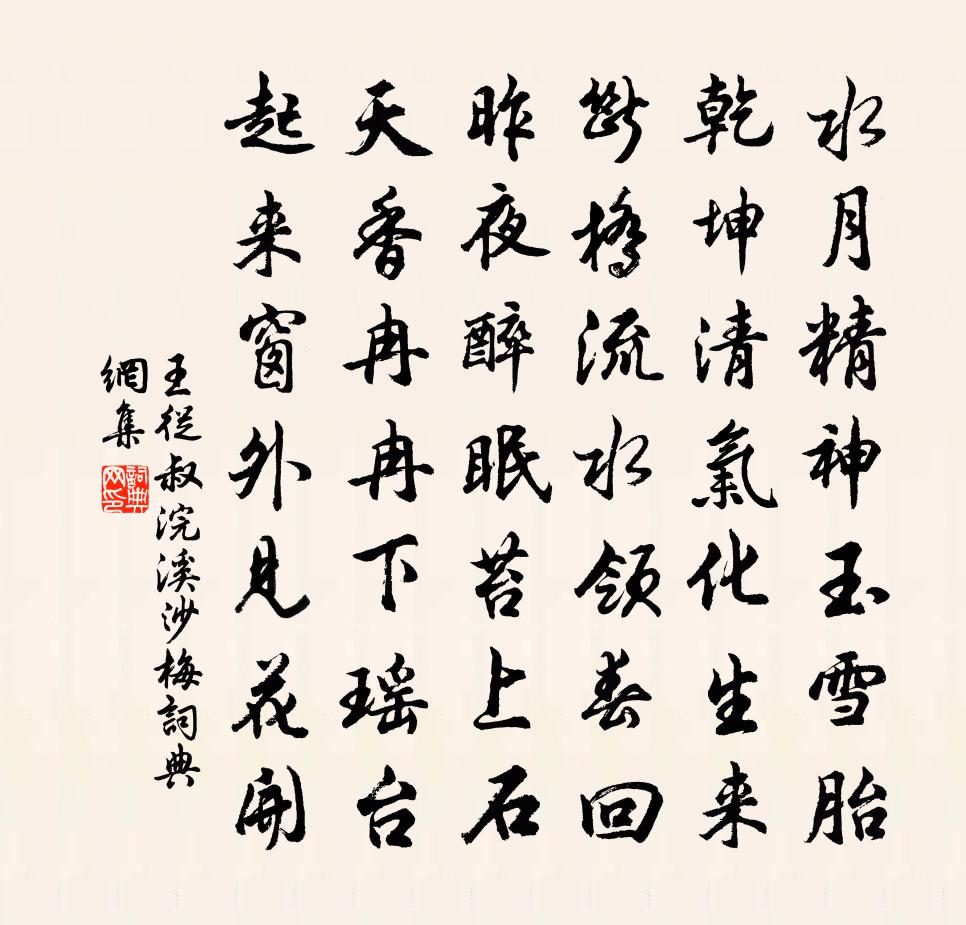 水月精神玉雪胎
乾坤清氣化生来
断橋流水領春回
昨夜醉眠苔上石
天香冉冉下瑶台
起来窗外見花開
王從叔浣溪沙梅詞典
網集
詞典网印